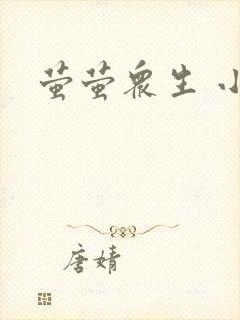 萤萤众生 小
唐婧